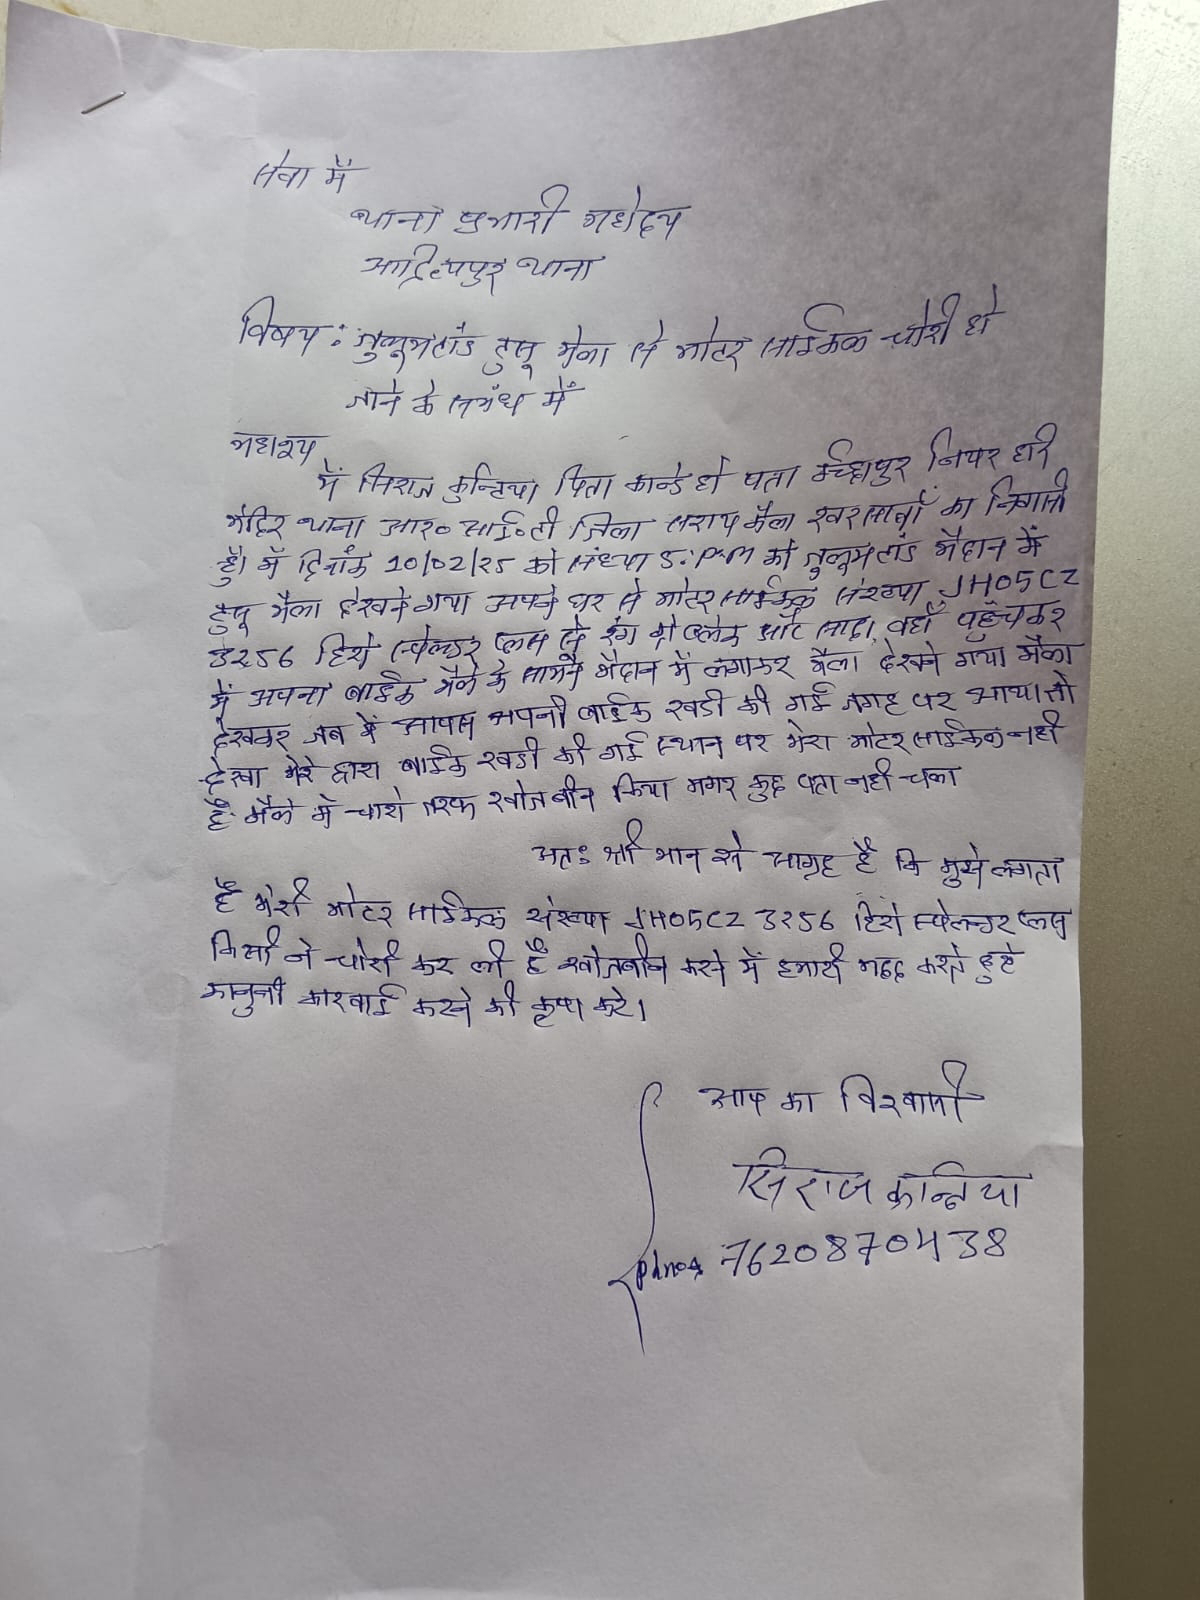 सेवा में
थाना प्रभारी महोदय
आदित्यपुर थाना
विषय: जुलुमटांड टुसू मेला से मोटर साईकिल चोरी हो
जाने के समंध में
महाशय
मैं सिराज कुन्टिया पिता कान्डे हो पता मच्छापुर नियर हरि
मंदिर थाना आर० आई०टी जिला सरायकेला खरसावाँ का निवासी
हुँ। मैं दिनांक 10/02/25 को संध्या 5:P.M को जुलुमटांड मैदान में
टुसू मैला देखने गया अपने घर से मोटर साईकिल संख्या JH05CZ
3256 हिरो स्पेलन्डर प्लस से रंग ब्लेक और सादा वहाँ पहुँचकर
में अपना बाईक मैले के सामने मैदान में लगाकर मैला देखने गया मैला
देखकर जब में आपस अपनी बाईक खडी की गई जगह पर आया तो
देखा मेरे द्वारा बाईक खडी की गई स्थान पर मेरा मोटर साईकिल नही
है मैले में चारो तरफ खोजबीन किया मगर कुछ पता नही चला
अतः श्री मान से आग्रह है कि मुझे लगता
है मेरी मोटर साईकिल संख्या JH05CZ 3256 हिरो स्पेलन्डर प्लस
किसी ने चोरी कर ली है खोजबीन करने में हमारी मदद करते हुए
कानुनी कारवाई करने की कृपा करे।
आप का विश्वासी
सिराज कुन्टिया
ph no 7620870438